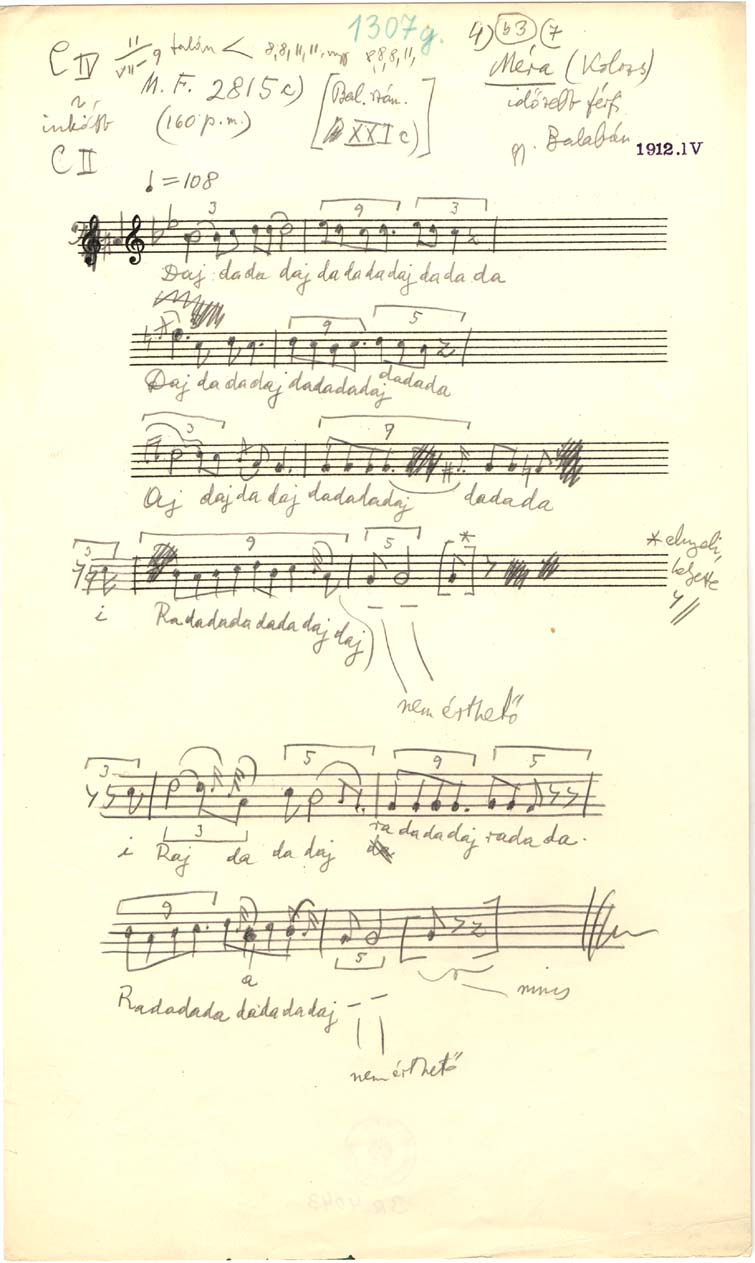 1307g.
C IV 11 VII-9 talán < 8,8,11,11, 8,8,8,11,
4) b3 (7
M. F. 2815 c) [Bal. szám. XXI c)]
Méra (Kolozs)
inkább (160 p.m.)
időrebb férfi
C II
gy. Balabán 1912.IV
♩=108
3 9 3
Daj dada daj dadadadaj dada da
9 5
Daj da da daj dadadadaj dadada
3 7
Aj dajda daj dadadadaj dadada
3 9 5 *
* elnyeli,
i Radadada dada daj daj
nem érthető
3 5 9 5
3
i Raj da da daj ra dadadaj rada da.
9
5
a
Radadada dadadadaj – –
nincs
nem érthető